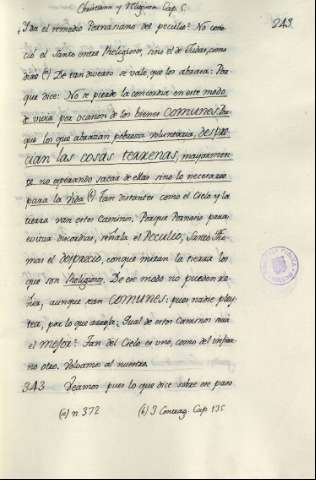 Christiano y Religioso Cap. 5.
243
el remedio Pernariano del peculio? No cono-
ció el Santo entre Religiosos, sino el de Eudas, como
dixo (a) De tan diverso se vale, que los abraza: Por
que dice: No se pierde la concordia en este modo
de vivir por ocasion de los bienes comunes, Por
que los que abrazan pobreza voluntaria, despre-
cian las cosas terrenas, mayormente
no esperando sacar de ellas sino lo necesario
para la vida (b) Tan distantes como el Cielo y la
tierra van estos caminos; Porque para
evitar discordias, señala el Peculio; Santo Tho-
mas el desprecio, conque miran la tierra los
que son Religiosos. De ese modo no pueden
aunque sean comunes: pues nadie pley-
tea, por lo que arroja; Qual de estos caminos será
el mejor? Tan del Cielo es uno, como del infier-
no otro. Volvamos al nuestro.
343 Veamos pues lo que dice sobre ese paso
(a) n 372 (b) 3 Contrag. Cap. 135